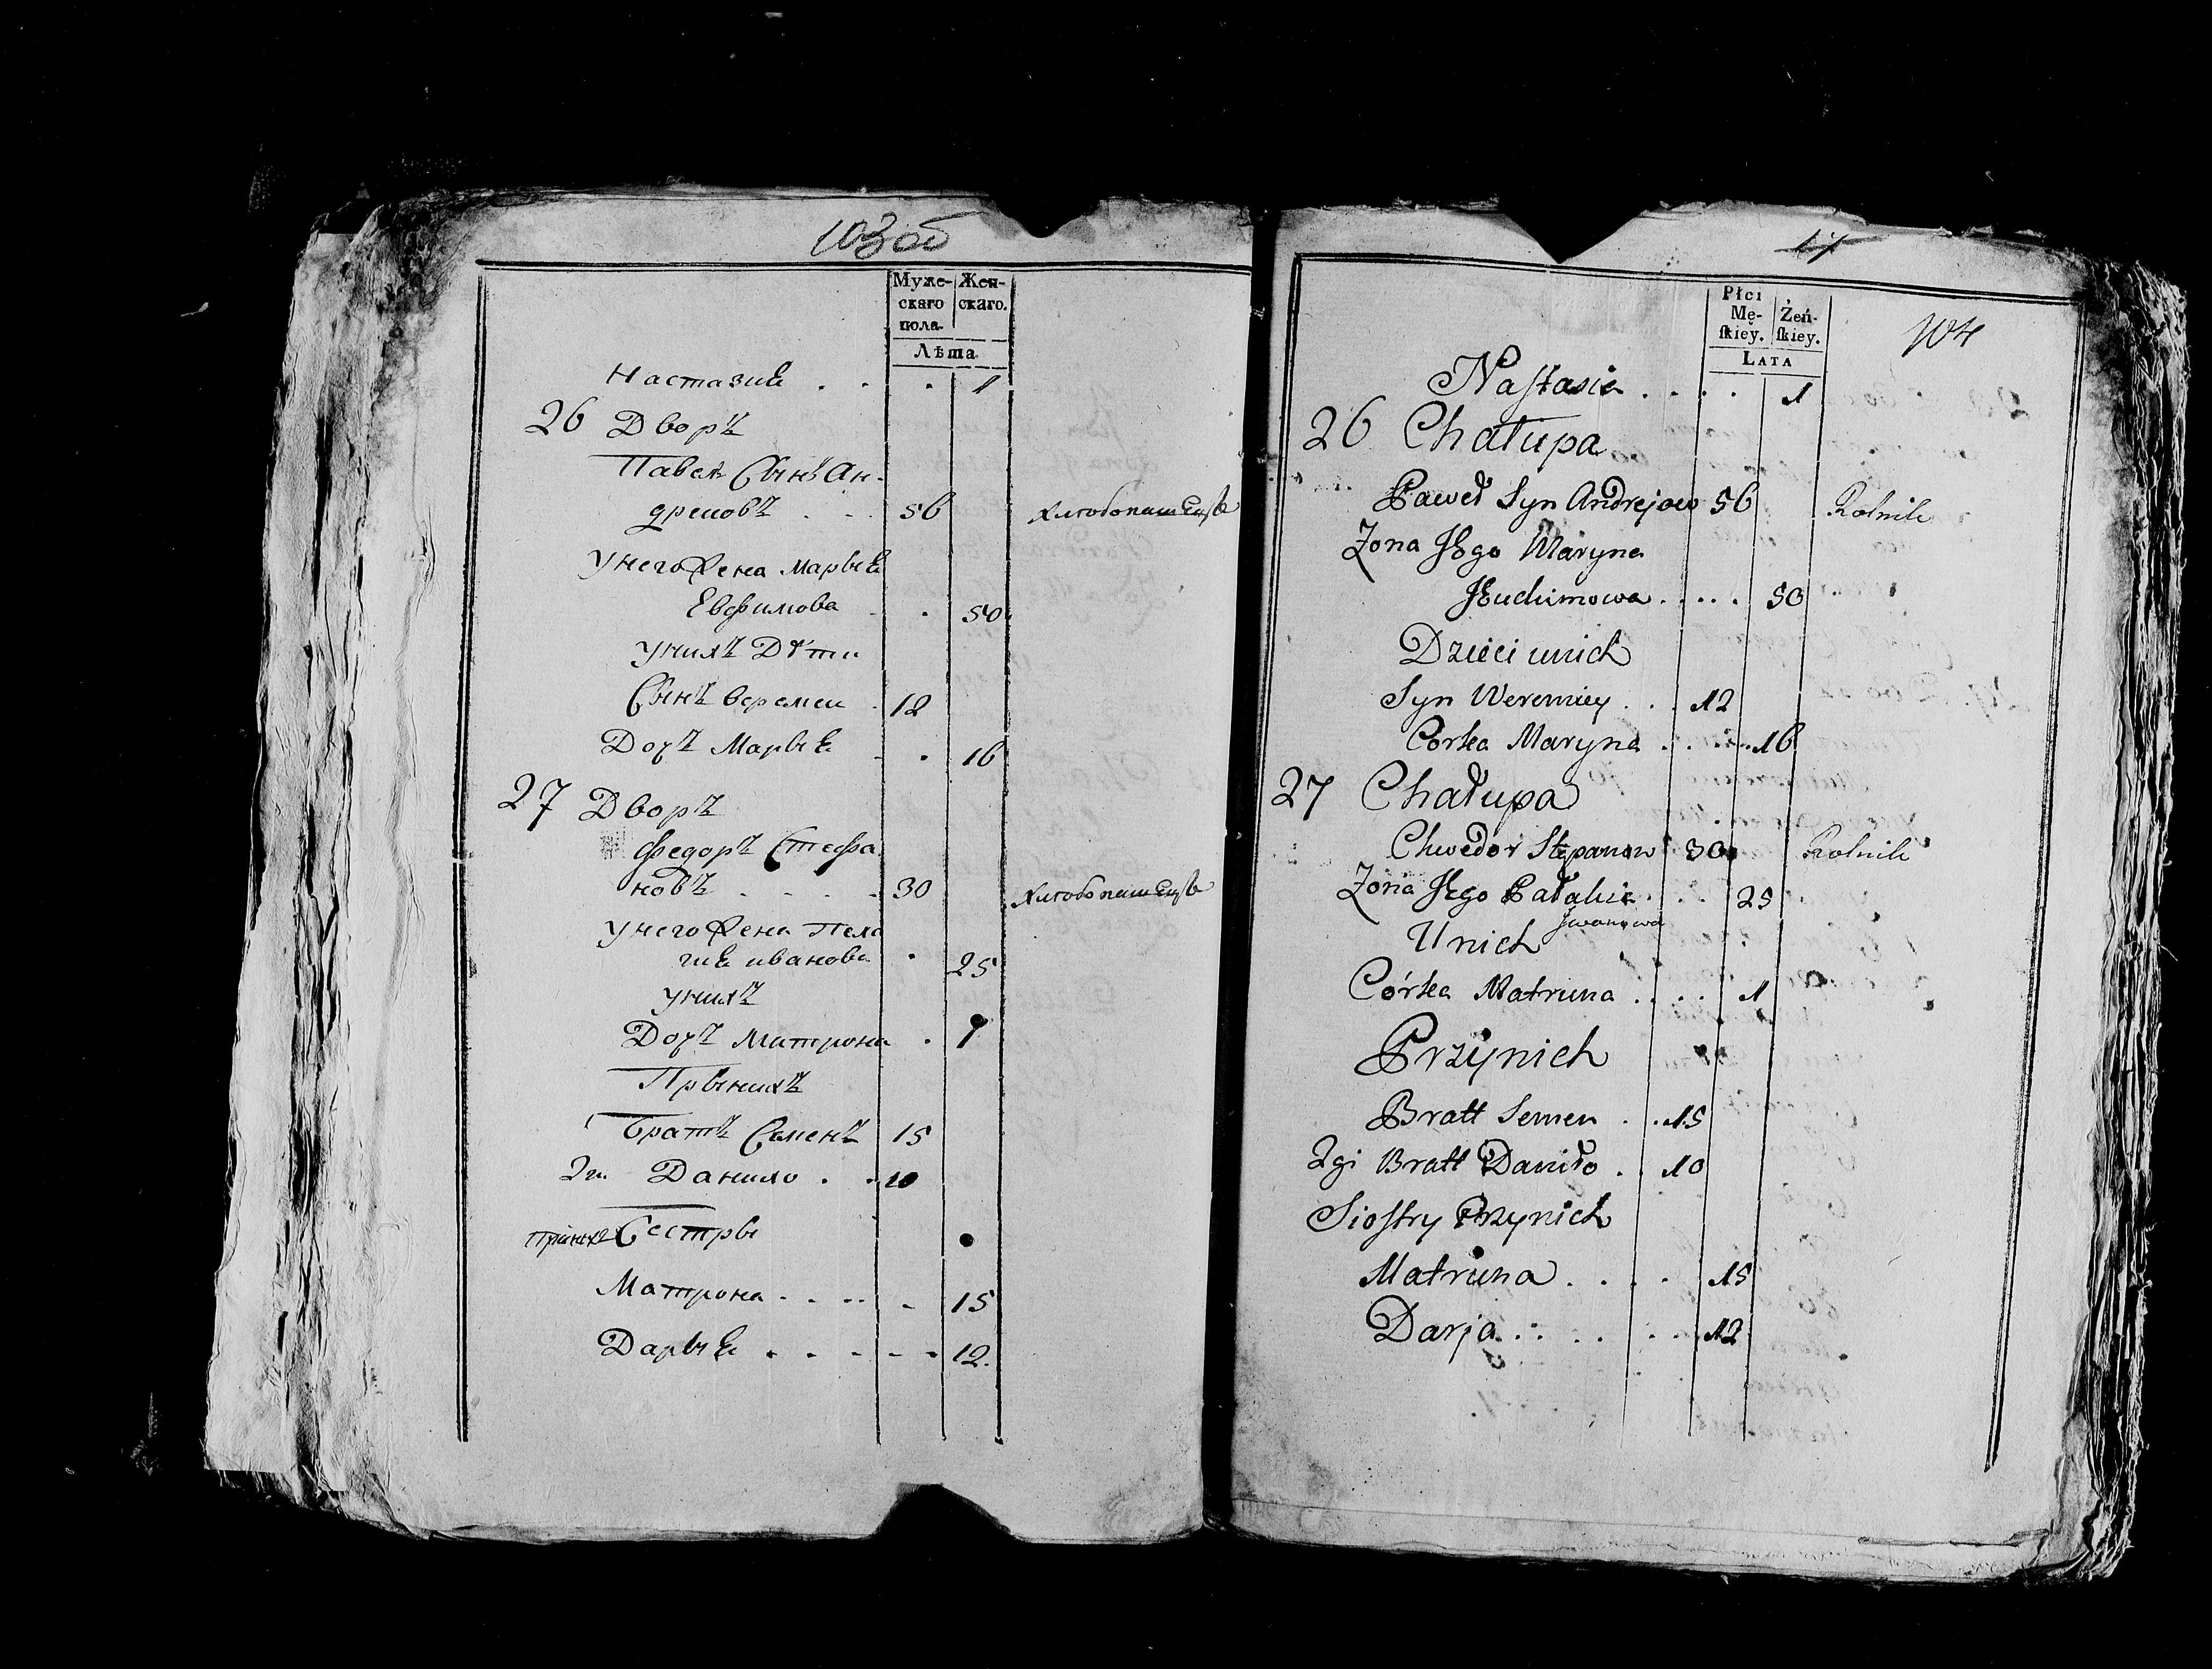 103 об
Муже-
скаго
пола.
Жен-
скаго.
Лѣта
Настазия . . . 1
26 Дворъ
Павелъ Сынъ Ан-
дреовъ . . 56 хлѣбопашецъ
У него Жена Марыя
Евфимова . . 50
У нихъ Дѣти
Сынъ Веремеи . 12
Дочъ Марыя . . 16
27 Дворъ
Федоръ Стефа
новъ . . . . 30 хлѣбопашецъ
У него Жена Пела
гия иванова . 25
У нихъ
Дочъ Матрона . 1
Пры нихъ
Братъ Семенъ 15
2й Данило . . 10
При нихъ Сестры
Матрона . . . . . 15
Дарыя . . . . . 12.
17
104
Płci
Mę-
ſkiey.
Żeń-
ſkiey.
LATA
Naſtasia . . . . 1
26 Chałupa
Paweł Syn Andrejow 56 Rolnik
Zona Jego Maryna
Jeuchimowa . . . . 50
Dzieci unich
Syn Weremiey . . . 12
Corka Maryna . . . . 16
27 Chałupa
Chwedor Stepanow 30 Rolnik
Zona Jego Pałahia . . . 25
Jwanowa
Unich
Córka Matruna . . . . 1
Przynich
Bratt Semen . . 15
2gi Bratt Daniło . . 10
Sioſtry Przynich
Matruna . . . . 15
Darja . . . . . . 12